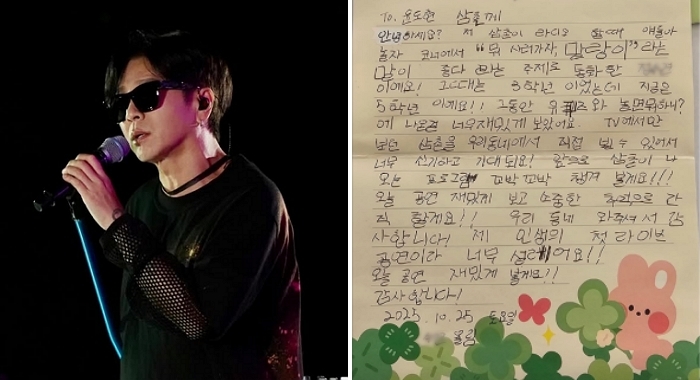 To. 윤도현 삼촌께
안녕하세요? 저 삼촌이 라디오 할때 얘들아
놀자 코너에서 "뭐 사러가자, 말랑이"라는
말이 좋다 라는 주제로 통화한
이에요! 그때는 3학년 이었는데 지금은
5학년 이에요!! 그동안 유퀴즈와 놀면뭐하니?
에 나온걸 너무재밌게 보았어요. TV에서만
보던 삼촌을 우리동네에서 직접 볼 수 있어서
너무 신기하고 기대되요! 앞으로 삼촌이 나
오는 프로그램 꼬박 꼬박 챙겨 볼게요!!!
오늘 공연 재밌게 보고 소중한 추억으로 간
직 할게요!! 우리 동네 와주셔서 감
사합니다! 제 인생의 첫 라이브
공연이라 너무 설레어요!!
오늘 공연 재밌게 볼게요!!
감사합니다!
2025. 10. 25 토요일
올림